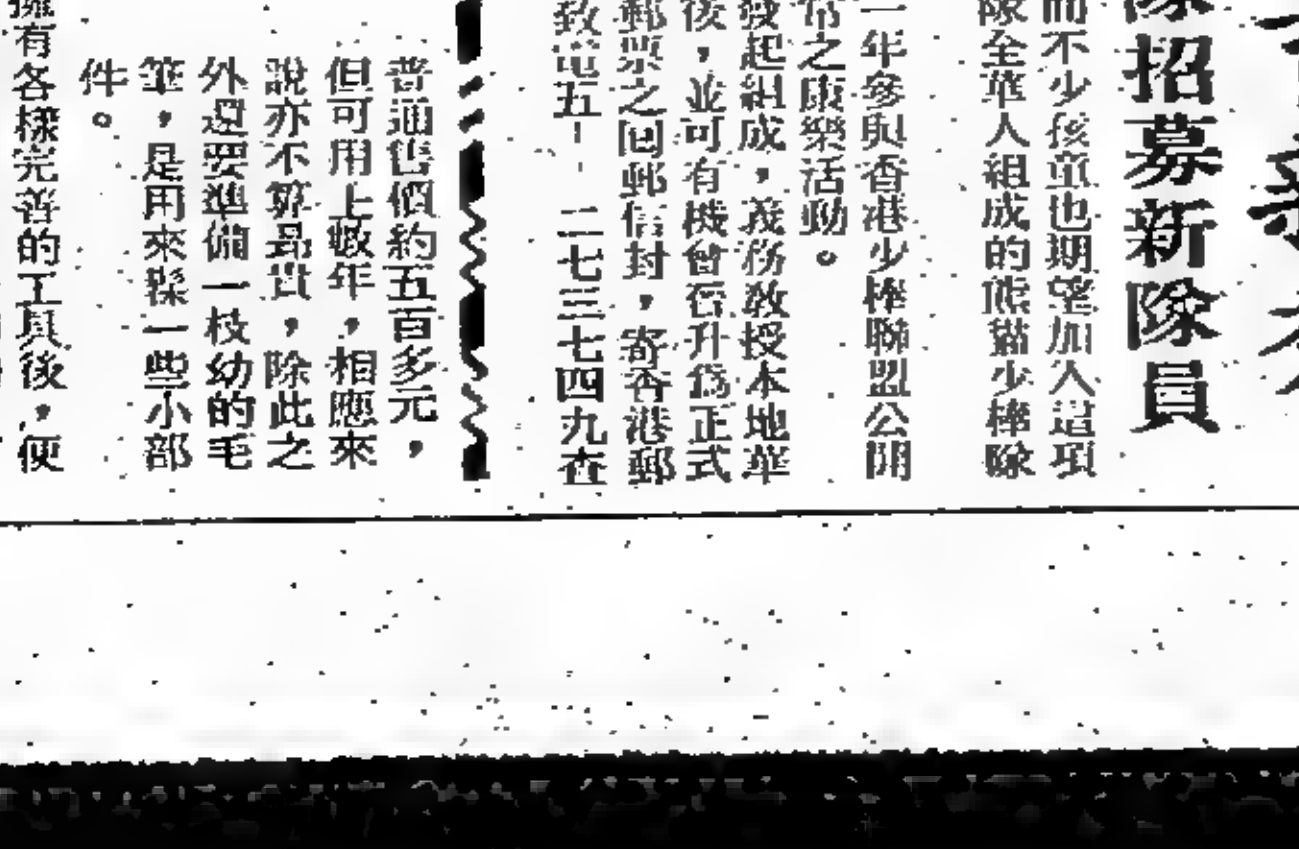 隊招募新隊員
而不少孩童也期望加入這項
隊全華人組成的熊貓少棒隊
一年參與香港少棒聯盟公開
常之康樂活動。
發起組成，義務教授本地華
後，並可有機會晉升為正式
郵票之回郵信封，寄香港郵
致電五－－二七三七四九查
普通售價約五百多元，
但可用上數年，相應來
說亦不算昂貴，除此之
外還要準備一枝幼的毛
筆，是用來髹一些小部
件。
擁有各樣完善的工具後，便